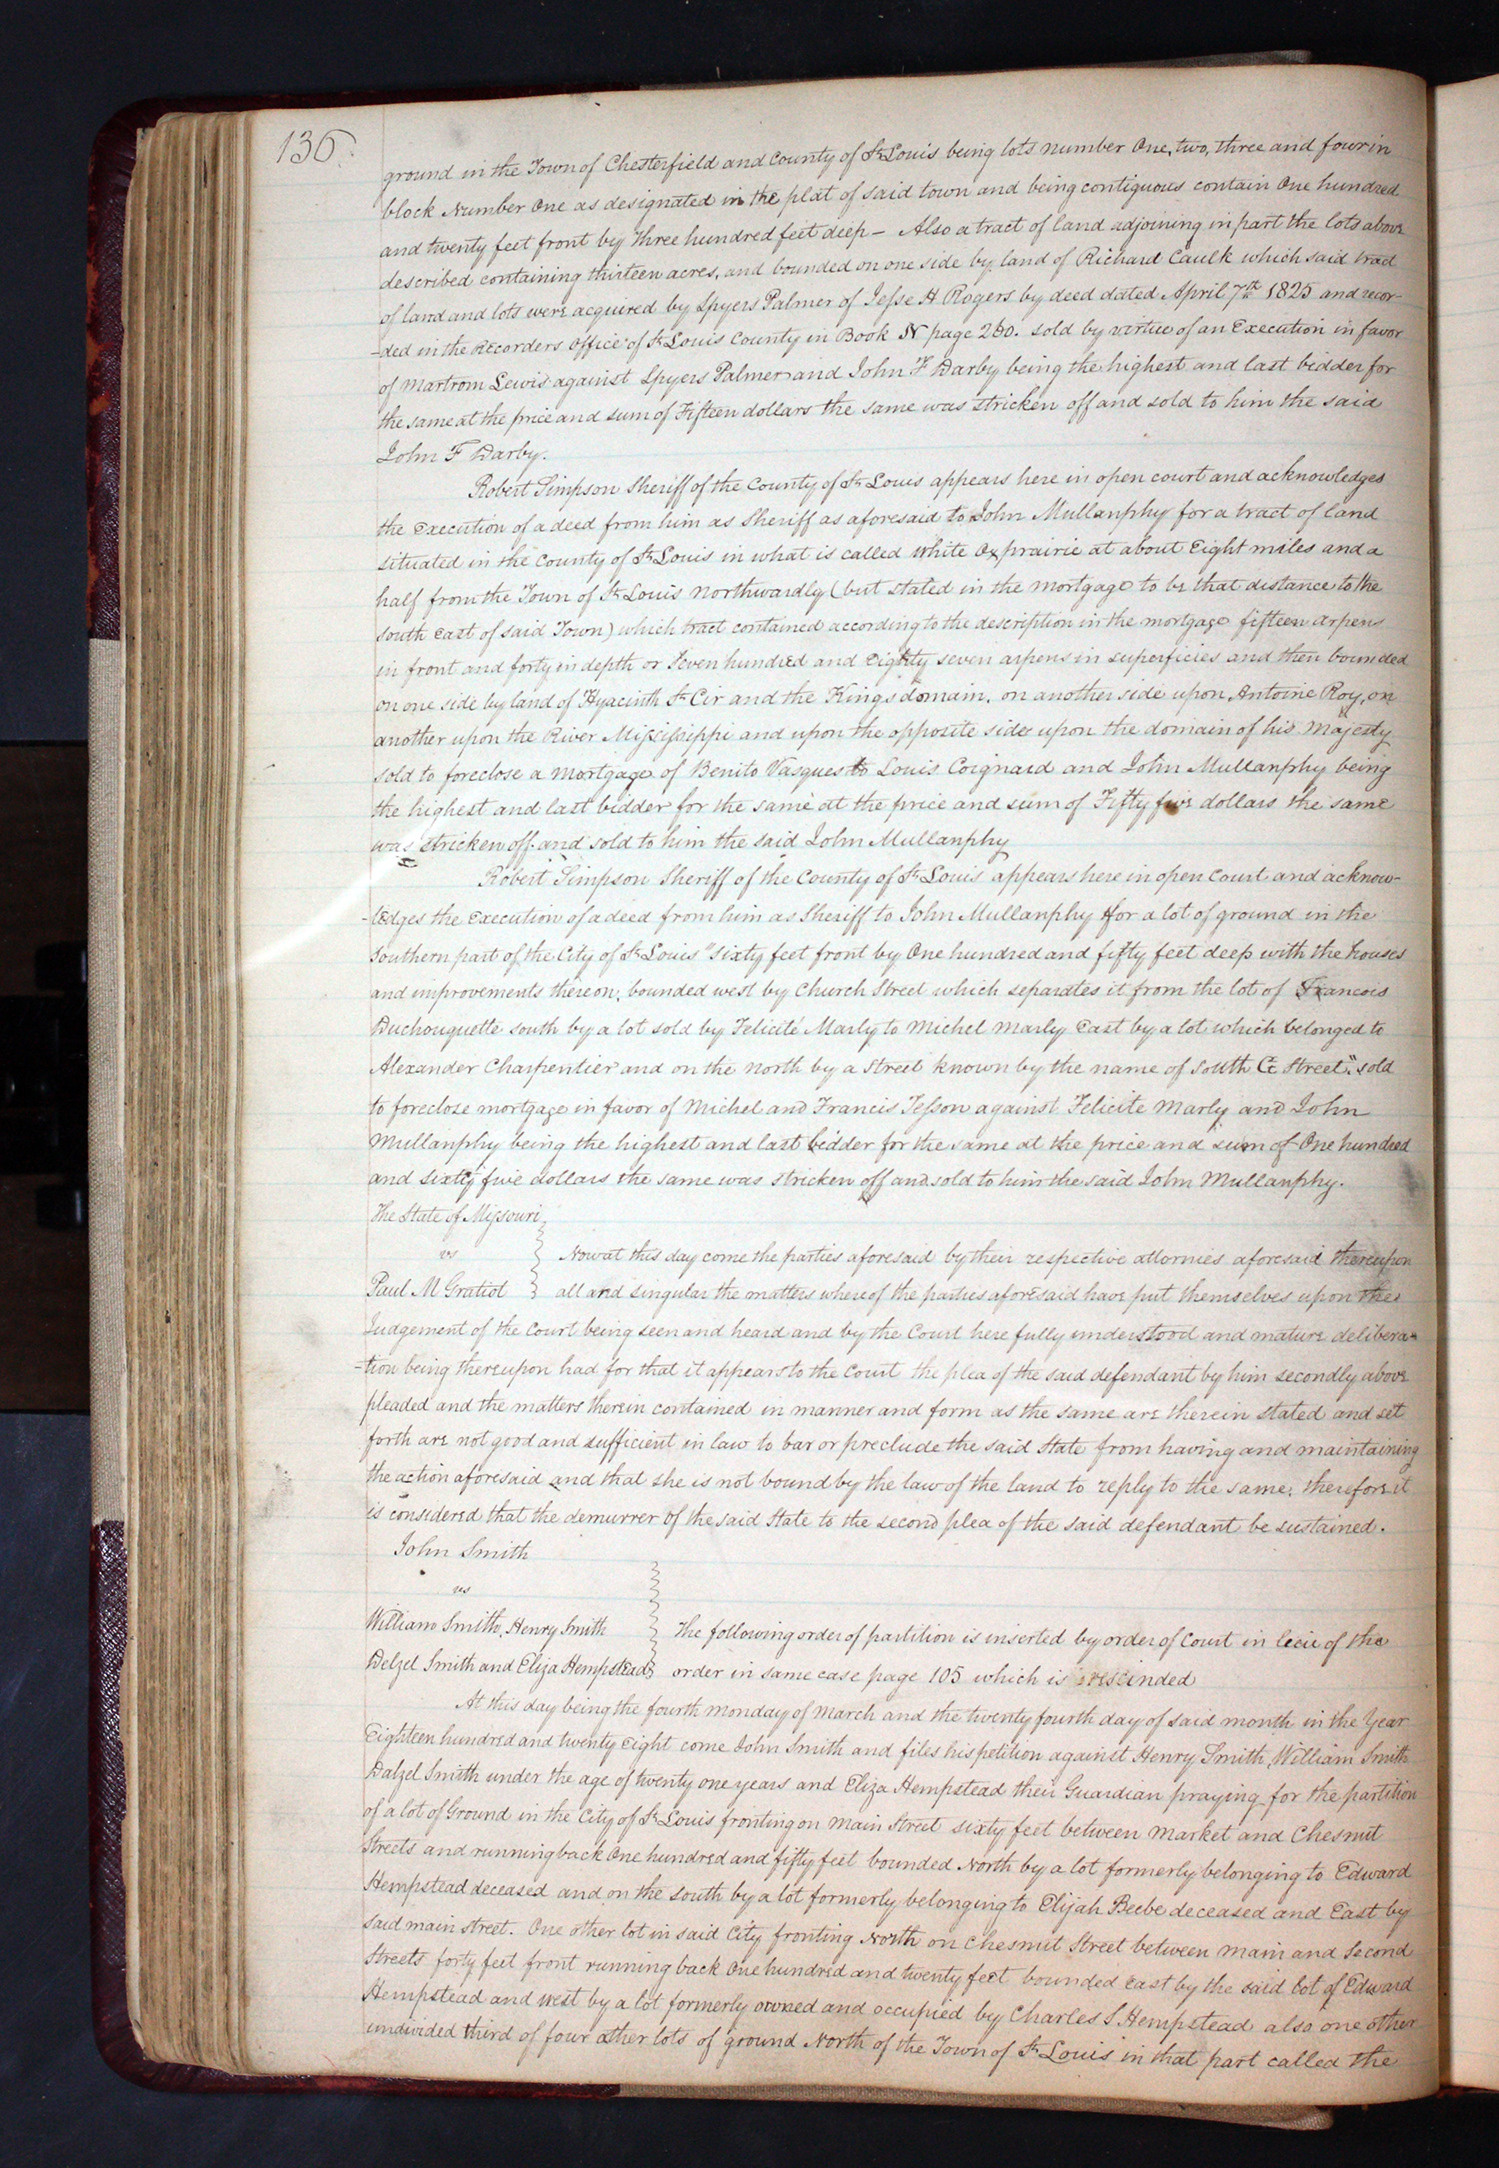 136.
ground in the Town of Chesterfield and County of St Louis being lots number One, two, three and four in
block Number One as designated in the plat of said town and being contiguous contain One hundred
and twenty feet front by three hundred feet deep – Also a tract of land adjoining in part the lots above
described containing thirteen acres, and bounded on one side by land of Richard Caulk which said tract
of land and lots were acquired by Spyers Palmer of Jesse H Rogers by deed dated April 7th 1825 and recor-
-ded in the Recorders Office of St Louis County in Book N page 260. sold by virtue of an Execution in favor
of Martrom Lewis against Spyers Palmer and John F Darby being the highest and last bidder for
the same at the price and sum of Fifteen dollars the same was stricken off and sold to him the said
John F Darby.
Robert Simpson Sheriff of the County of St Louis appears here in open court and acknowledges
the Execution of a deed from him as Sheriff as aforesaid to John Mullanphy for a tract of land
situated in the County of St Louis in what is called White Ox prairie at about Eight miles and a
half from the Town of St Louis Northwardly (but stated in the Mortgage to be that distance to the
South East of said Town) which tract contained according to the description in the mortgage fifteen arpens
in front and forty in depth or Seven hundred and Eighty seven arpens in superficies and then bounded
on one side by land of Hyacinth St Cir and the Kings domain, on another side upon Antoine Roy, on
another upon the River Mississippi and upon the opposite side upon the domain of his Majesty
sold to foreclose a Mortgage of Benito Vasques to Louis Coignard and John Mullanphy being
the highest and last bidder for the same at the price and sum of Fifty five dollars the same
was stricken off and sold to him the said John Mullanphy
Robert Simpson Sheriff of the County of St Louis appears here in open Court and acknow-
-ledges the Execution of a deed from him as Sheriff to John Mullanphy for a lot of ground in the
Southern part of the City of St Louis "sixty feet front by One hundred and fifty feet deep with the houses
and improvements thereon, bounded west by Church Street which separates it from the lot of Francois
Duchouquette south by a lot sold by Felicité Marly to Michel Marly East by a lot which belonged to
Alexander Charpentier and on the North by a Street known by the name of South C Street". sold
to foreclose mortgage in favor of Michel and Francis Tesson against Felicite Marly and John
Mullanphy being the highest and last bidder for the same at the price and sum of One hundred
and sixty five dollars the same was stricken off and sold to him the said John Mullanphy.
The State of Missouri
vs
Now at this day come the parties aforesaid by their respective attornies aforesaid thereupon
Paul M Gratiot
all and singular the matters whereof the parties aforesaid have put themselves upon the
Judgement of the Court being seen and heard and by the Court here fully understood and mature delibera-
-tion being thereupon had for that it appears to the Court the plea of the said defendant by him secondly above
pleaded and the matters therein contained in manner and form as the same are therein stated and set
forth are not good and sufficient in law to bar or preclude the said State from having and maintaining
the action aforesaid and that she is not bound by the law of the land to reply to the same, therefore it
is considered that the demurrer of the said State to the second plea of the said defendant be sustained.
John Smith
vs
William Smith, Henry Smith
The following order of partition is inserted by order of Court in lieu of the
Delzel Smith and Eliza Hempstead
order in same case page 105 which is rescinded
At this day being the fourth Monday of March and the twenty fourth day of said month in the Year
Eighteen hundred and twenty Eight come John Smith and files his petition against Henry Smith, William Smith
Dalzel Smith under the age of twenty one years and Eliza Hempstead their Guardian praying for the partition
of a lot of Ground in the City of St Louis fronting on Main Street sixty feet between Market and Chesnut
Streets and running back One hundred and fifty feet bounded North by a lot formerly belonging to Edward
Hempstead deceased and on the South by a lot formerly belonging to Elijah Beebe deceased and East by
said main street. One other lot in said City fronting North on Chesnut Street between Main and Second
Streets forty feet front running back One hundred and twenty feet bounded East by the said lot of Edward
Hempstead and West by a lot formerly owned and occupied by Charles S Hempstead also one other
undivided third of four other lots of ground North of the Town of St Louis in that part called the